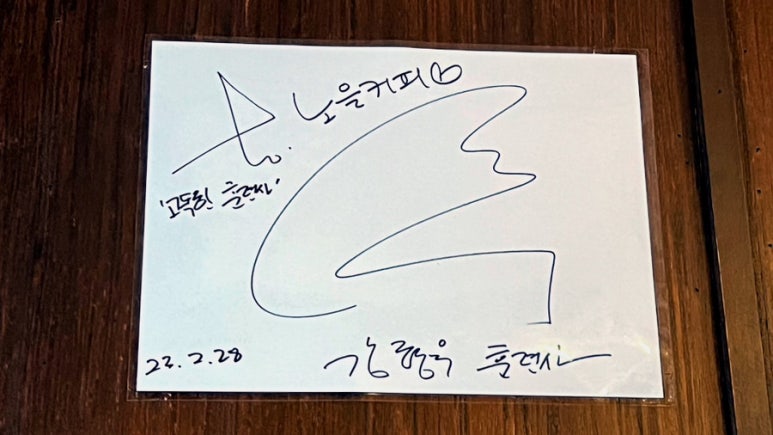 노을커피♡
'고독한 훈련사'
23.2.28
강형욱 훈련사